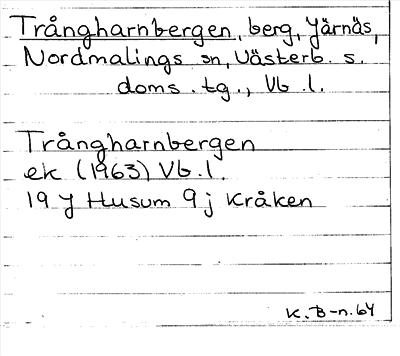 Trångharnbergen, berg, Järnäs,
Nordmalings sn, Västerb. s.
doms. tg., Vb. l.
Trångharnbergen
ek (1963) Vb. l.
19 J Husum 9 j Kråken
K. B-n. 64